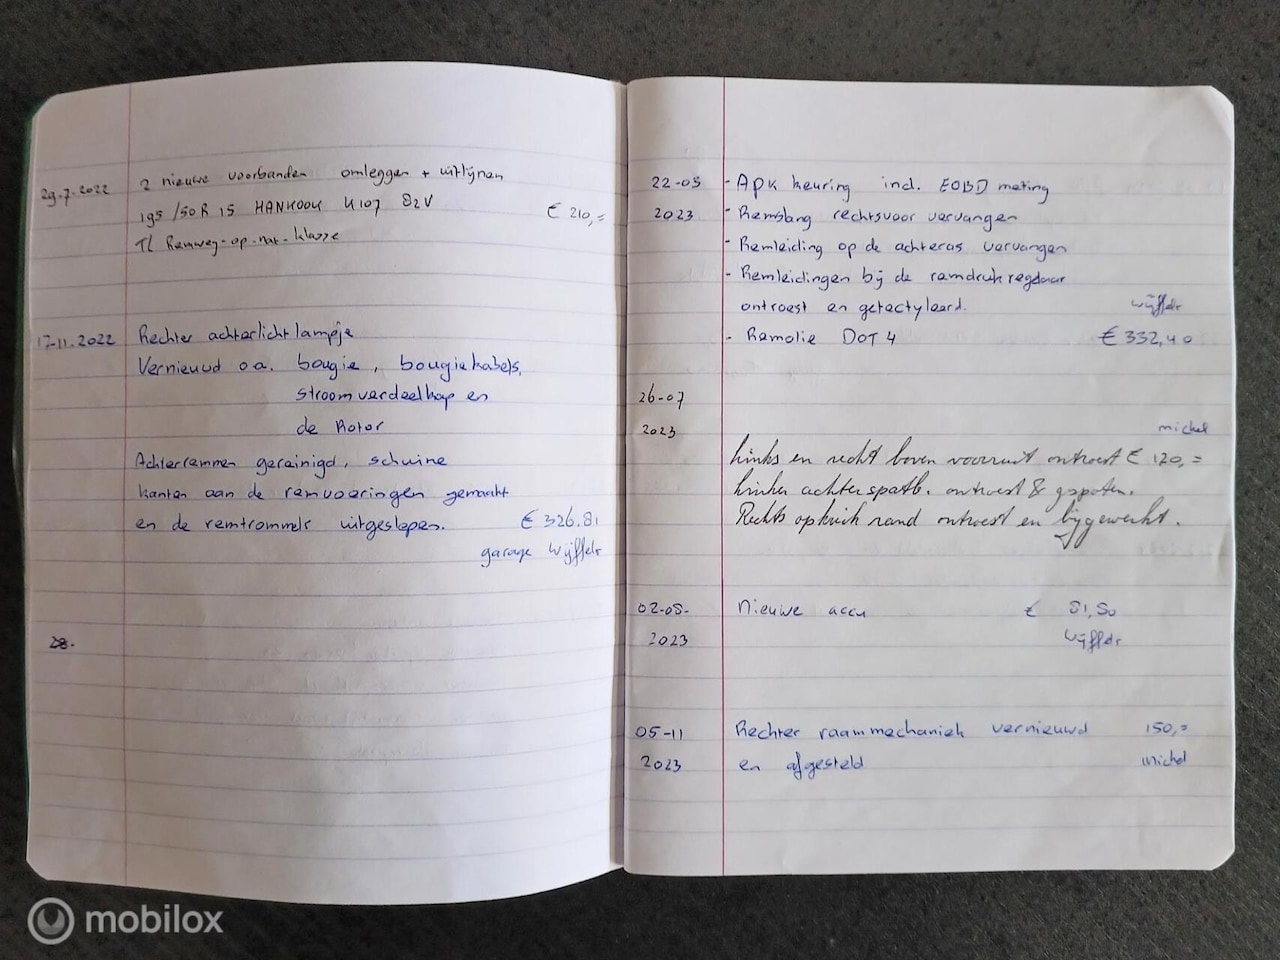 29.7.2022 2 nieuwe voorbanden omleggen + uitlijnen
195/50R 15 HANKOOK K107 82V € 210,=
TL Remweg-op-nat-klasse
17-11.2022 Rechter achterlicht lampje
Vernieuwd o.a. bougie, bougiekabels,
stroomverdeelkap en
de Rotor
Achterremmen gereinigd, schuine
kanten aan de remvoeringen gemaakt
en de remtrommels uitgeslepen. € 326.81
garage Wijffels
28.
22-05 - Apk keuring incl. EOBD meting
2023 - Remslang rechtsvoor vervangen
- Remleiding op de achteras vervangen
- Remleidingen bij de remdrukregelaar
ontroest en getectyleerd. Wijffels
- Remolie DOT 4 € 332,40
26-07
2023 michel
Links en recht boven voorruit ontroest € 120,=
Linker achter spatb. ontroest & gespoten.
Rechts opkrik rand ontroest en bijgewerkt.
02-08- Nieuwe accu € 81,50
2023 Wijffels
05-11 Rechter raammechaniek vernieuwd 150,=
2023 en afgesteld michel
mobilox